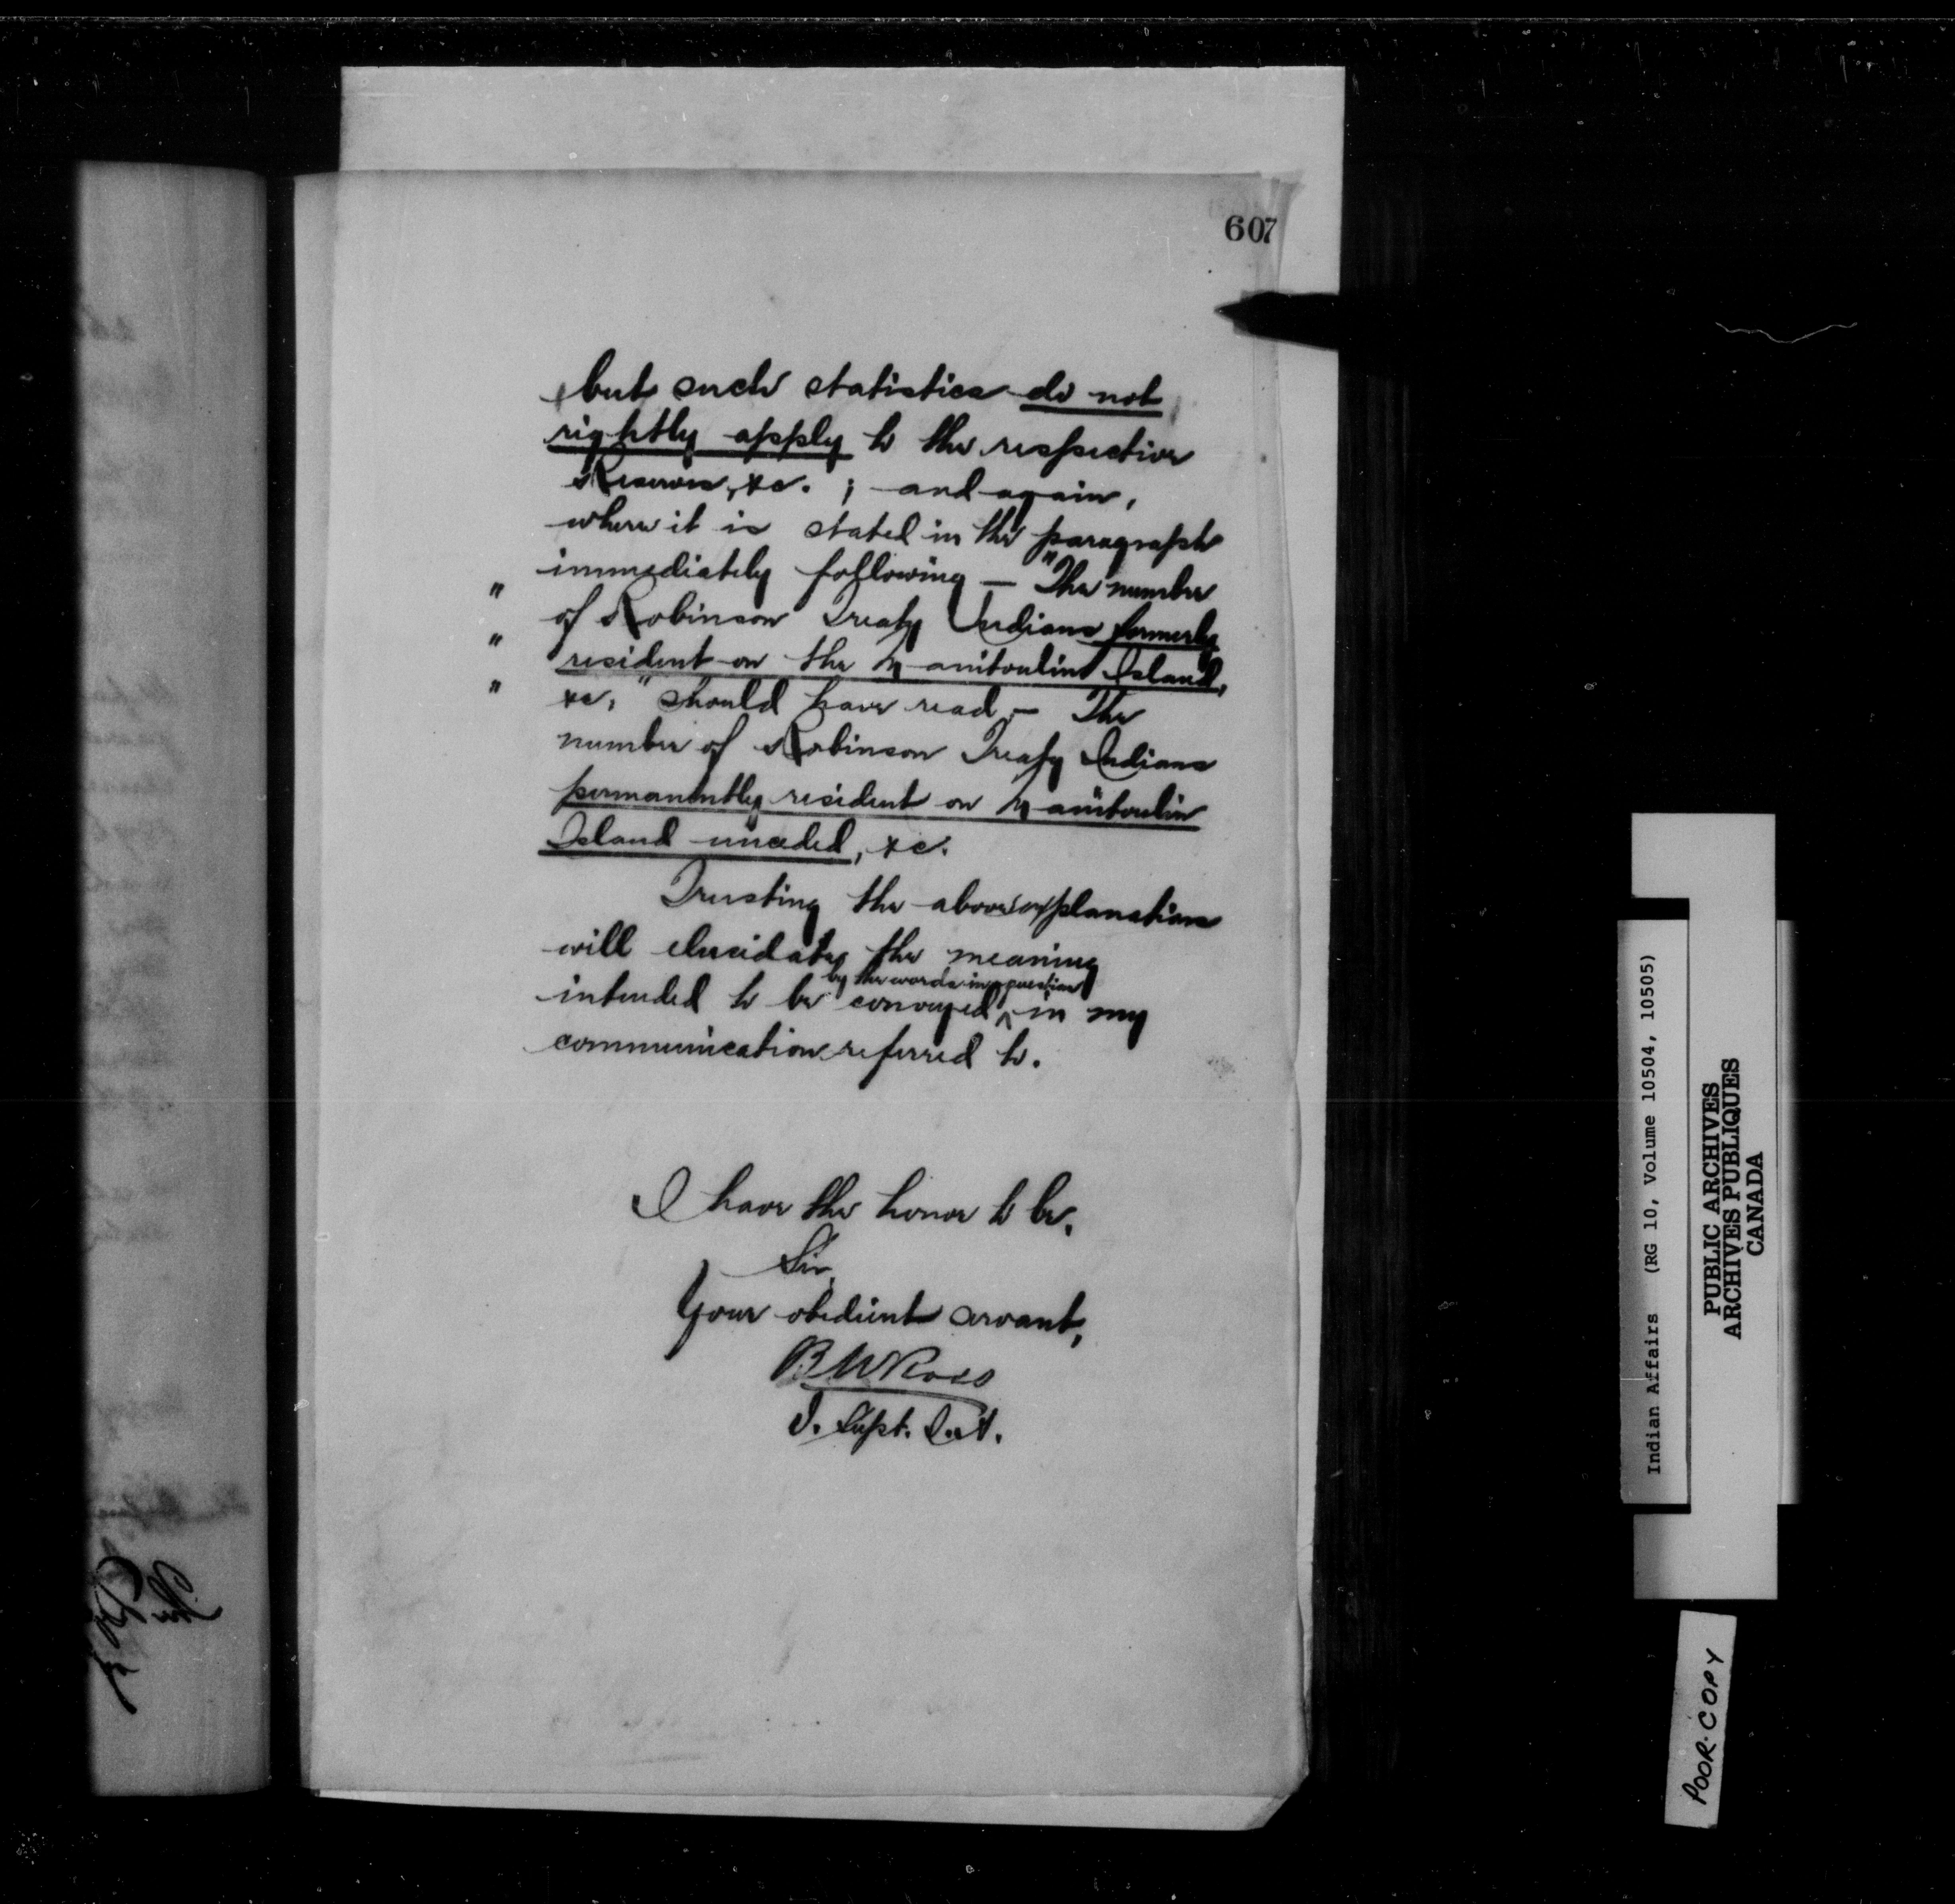 607
but such statistics do not
rightly apply to the respective
Reserves, &c. ; and again,
where it is stated in the paragraph
immediately following — "The number
" of Robinson Treaty Indians formerly
" resident on the Manitoulin Island,
" &c," should have read — The
number of Robinson Treaty Indians
permanently resident on Manitoulin
Island unceded, &c.
Trusting the above explanations
will elucidate the meaning
by the words in question
intended to be conveyed ^ in my
communication referred to.
I have the honor to be,
Sir,
Your obedient servant,
B W Ross
I. Supt. I.A.
Indian Affairs (RG 10, Volume 10504, 10505)
PUBLIC ARCHIVES
ARCHIVES PUBLIQUES
CANADA
POOR COPY